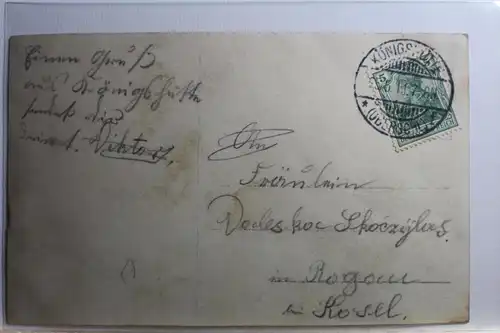 Einen Gruß
aus Königshütte
sendet dir
Viktor.
KÖNIGSHÜTTE
* (OBERSCHLES.)
An
Fräulein
Skoczylas
in Rogau
bei Kosel.